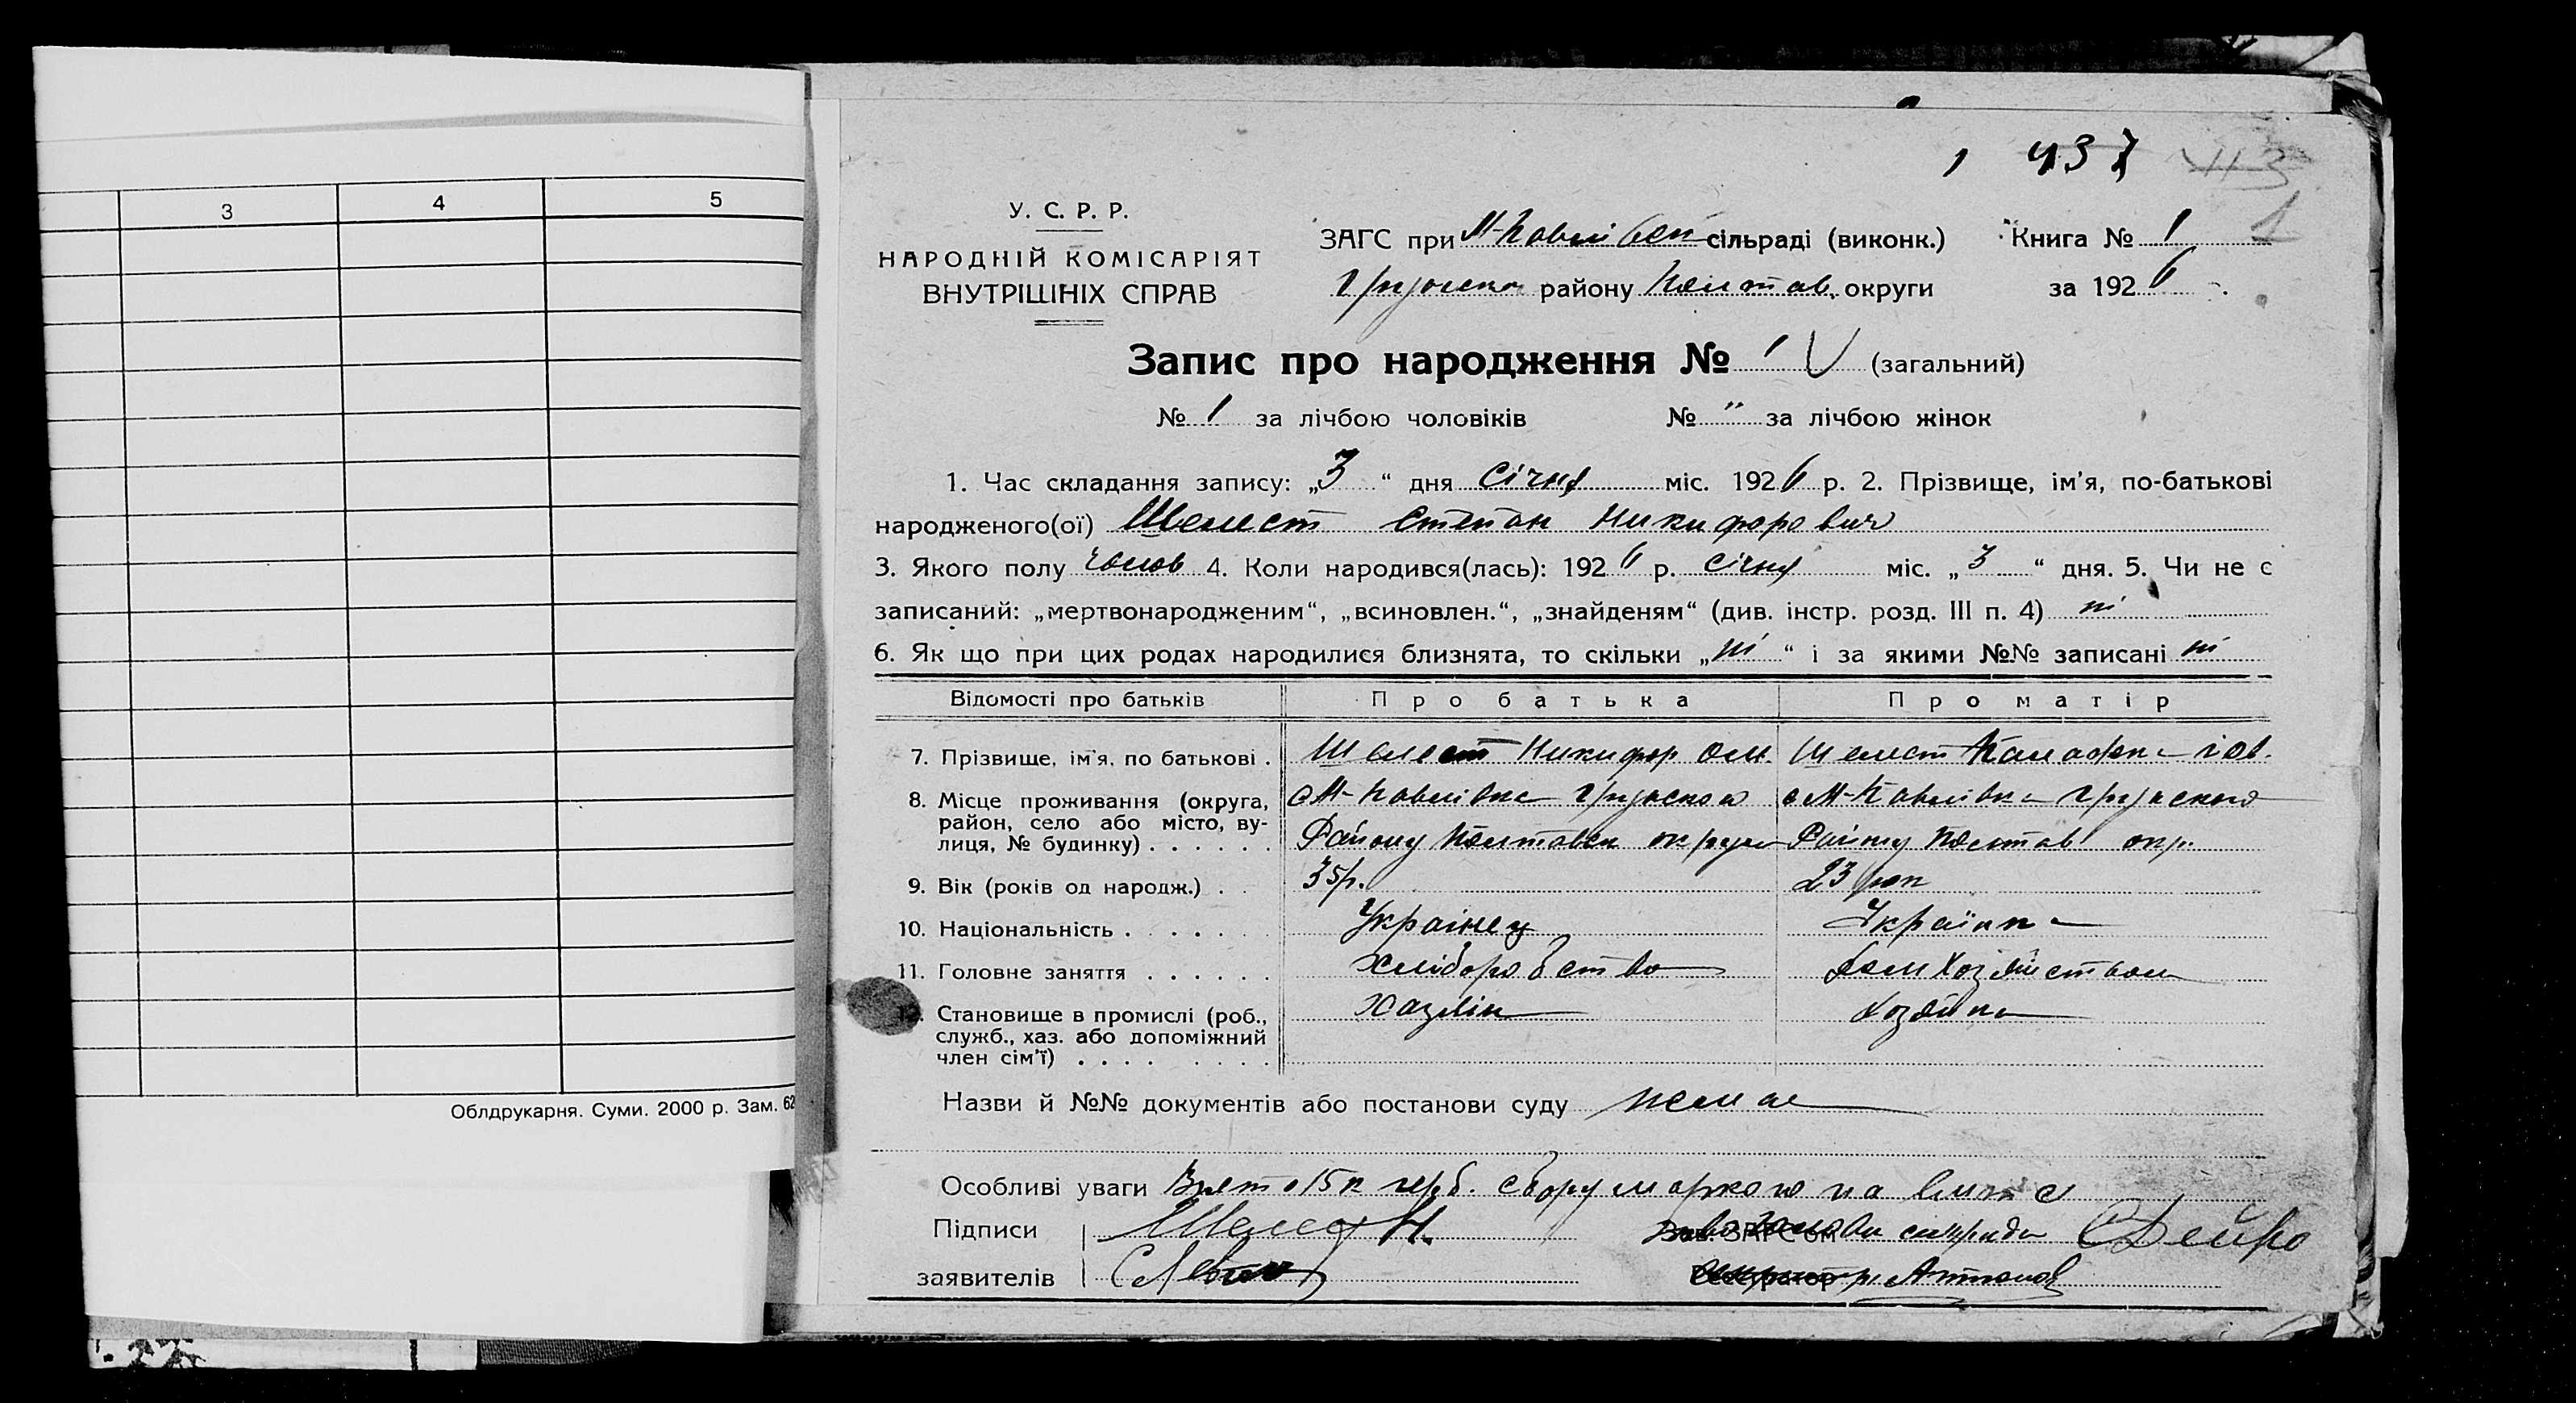 3 4 5
Облдрукарня. Суми. 2000 р. Зам. 62
1 437 113
1
У. С. Р. Р.
НАРОДНІЙ КОМІСАРІЯТ
ВНУТРІШНІХ СПРАВ
ЗАГС при М-Павлівск сільраді (виконк.) Книга № 1
Грунськ району Полтав. округи за 1926
Запис про народження № 1 V (загальний)
№ 1 за лічбою чоловіків № " за лічбою жінок
1. Час складання запису: „3“ дня січня міс. 1926 р. 2. Прізвище, ім’я, по-батькові
народженого(ої) Шелест Степан Никифорович
3. Якого полу чолов 4. Коли народився(лась): 1926 р. січня міс. „3“ дня. 5. Чи не є
записаний: „мертвонародженим“, „всиновлен.“, „знайденям“ (див. інстр. розд. III п. 4) ні
6. Як що при цих родах народилися близнята, то скільки „ні“ і за якими №№ записані ні
Відомості про батьків Про батька Про матір
7. Прізвище, ім’я, по батькові . Шелест Никифор Ом. Шелест
8. Місце проживання (округа, район, село або місто, вулиця, № будинку) . . . . . . с М-Павлівка Грунського с М-Павлівка Грунського
Району Полтавск округи Району Полтав окр.
9. Вік (років од народж.) . . 35 р. 23 рок
10. Національність . . . . . . Українец Українка
11. Головне заняття . . . . . . Хліборобство домХозяйством
12. Становище в промислі (роб., служб., хаз. або допоміжний член сім’ї) . . . . . . . . Хазяїн Хозяйка
Назви й №№ документів або постанови суду немає
Особливі уваги Взято 15 к герб. сбору маркою на
Підписи Шелест Н. Зав. ЗАГС’ом сільради
заявителів Реєстратор